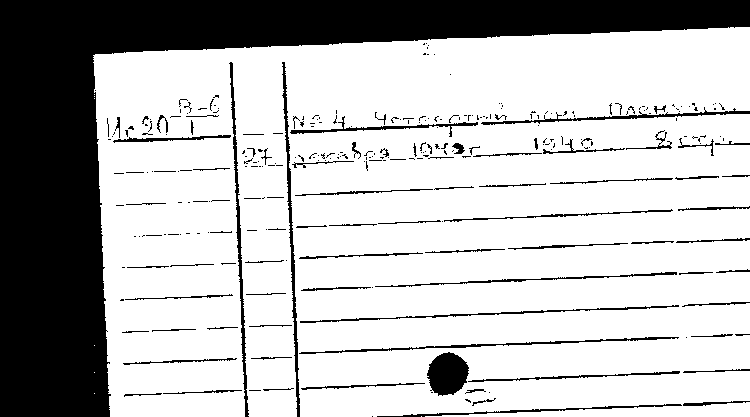 2.
В-6
Ис 20 1
№ 4. Четвертый день Пленума.
27 декабря 1940 г 1940 8 стр.